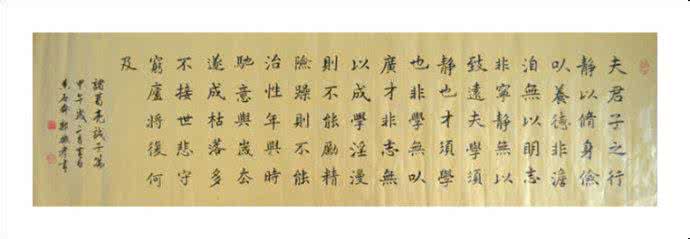 夫君子之行
靜以脩身儉
以養德非澹
泊無以明志
非寧靜無以
致遠夫學須
靜也才須學
也非學無以
廣才非志無
以成學淫漫
則不能勵精
險躁則不能
治性年與時
馳意與歲去
遂成枯落多
不接世悲守
窮廬將復何
及
諸葛亮誡子篇
甲午歲二月吉日
書